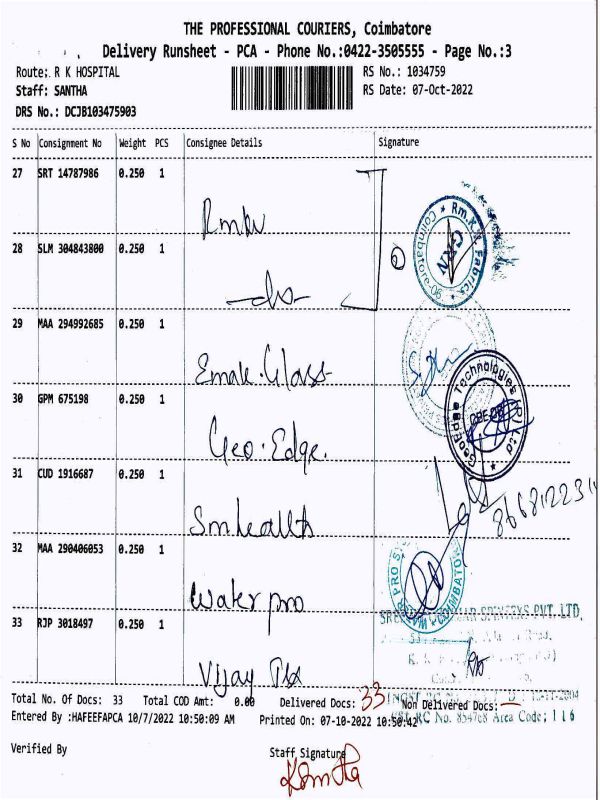 THE PROFESSIONAL COURIERS, Coimbatore
Delivery Runsheet - PCA - Phone No.:0422-3505555 - Page No.:3
Route: R K HOSPITAL
RS No.: 1034759
Staff: SANTHA
RS Date: 07-Oct-2022
DRS No.: DCJB103475903
S No Consignment No Weight PCS Consignee Details Signature
27 SRT 14787986 0.250 1
Rmkv
Coimbatore-90 ★ Rm.K.V. Fabrics ★
28 SLM 304843800 0.250 1
-do-
29 MAA 294992685 0.250 1
Glass
30 GPM 675198 0.250 1
Geo. Edge.
GeoEdge Technologies (P) Ltd ★
31 CUD 1916687 0.250 1
Smhealth
32 MAA 290406053 0.250 1
Water pro
WATER PRO COIMBATORE
33 RJP 3018497 0.250 1
Vijay
PVT. LTD,
Total No. Of Docs: 33 Total COD Amt: 0.00 Delivered Docs: 33 Non Delivered Docs: —
Entered By :HAFEEFAPCA 10/7/2022 10:50:09 AM Printed On: 07-10-2022 10:50:42
Area Code: 116
Verified By
Staff Signature